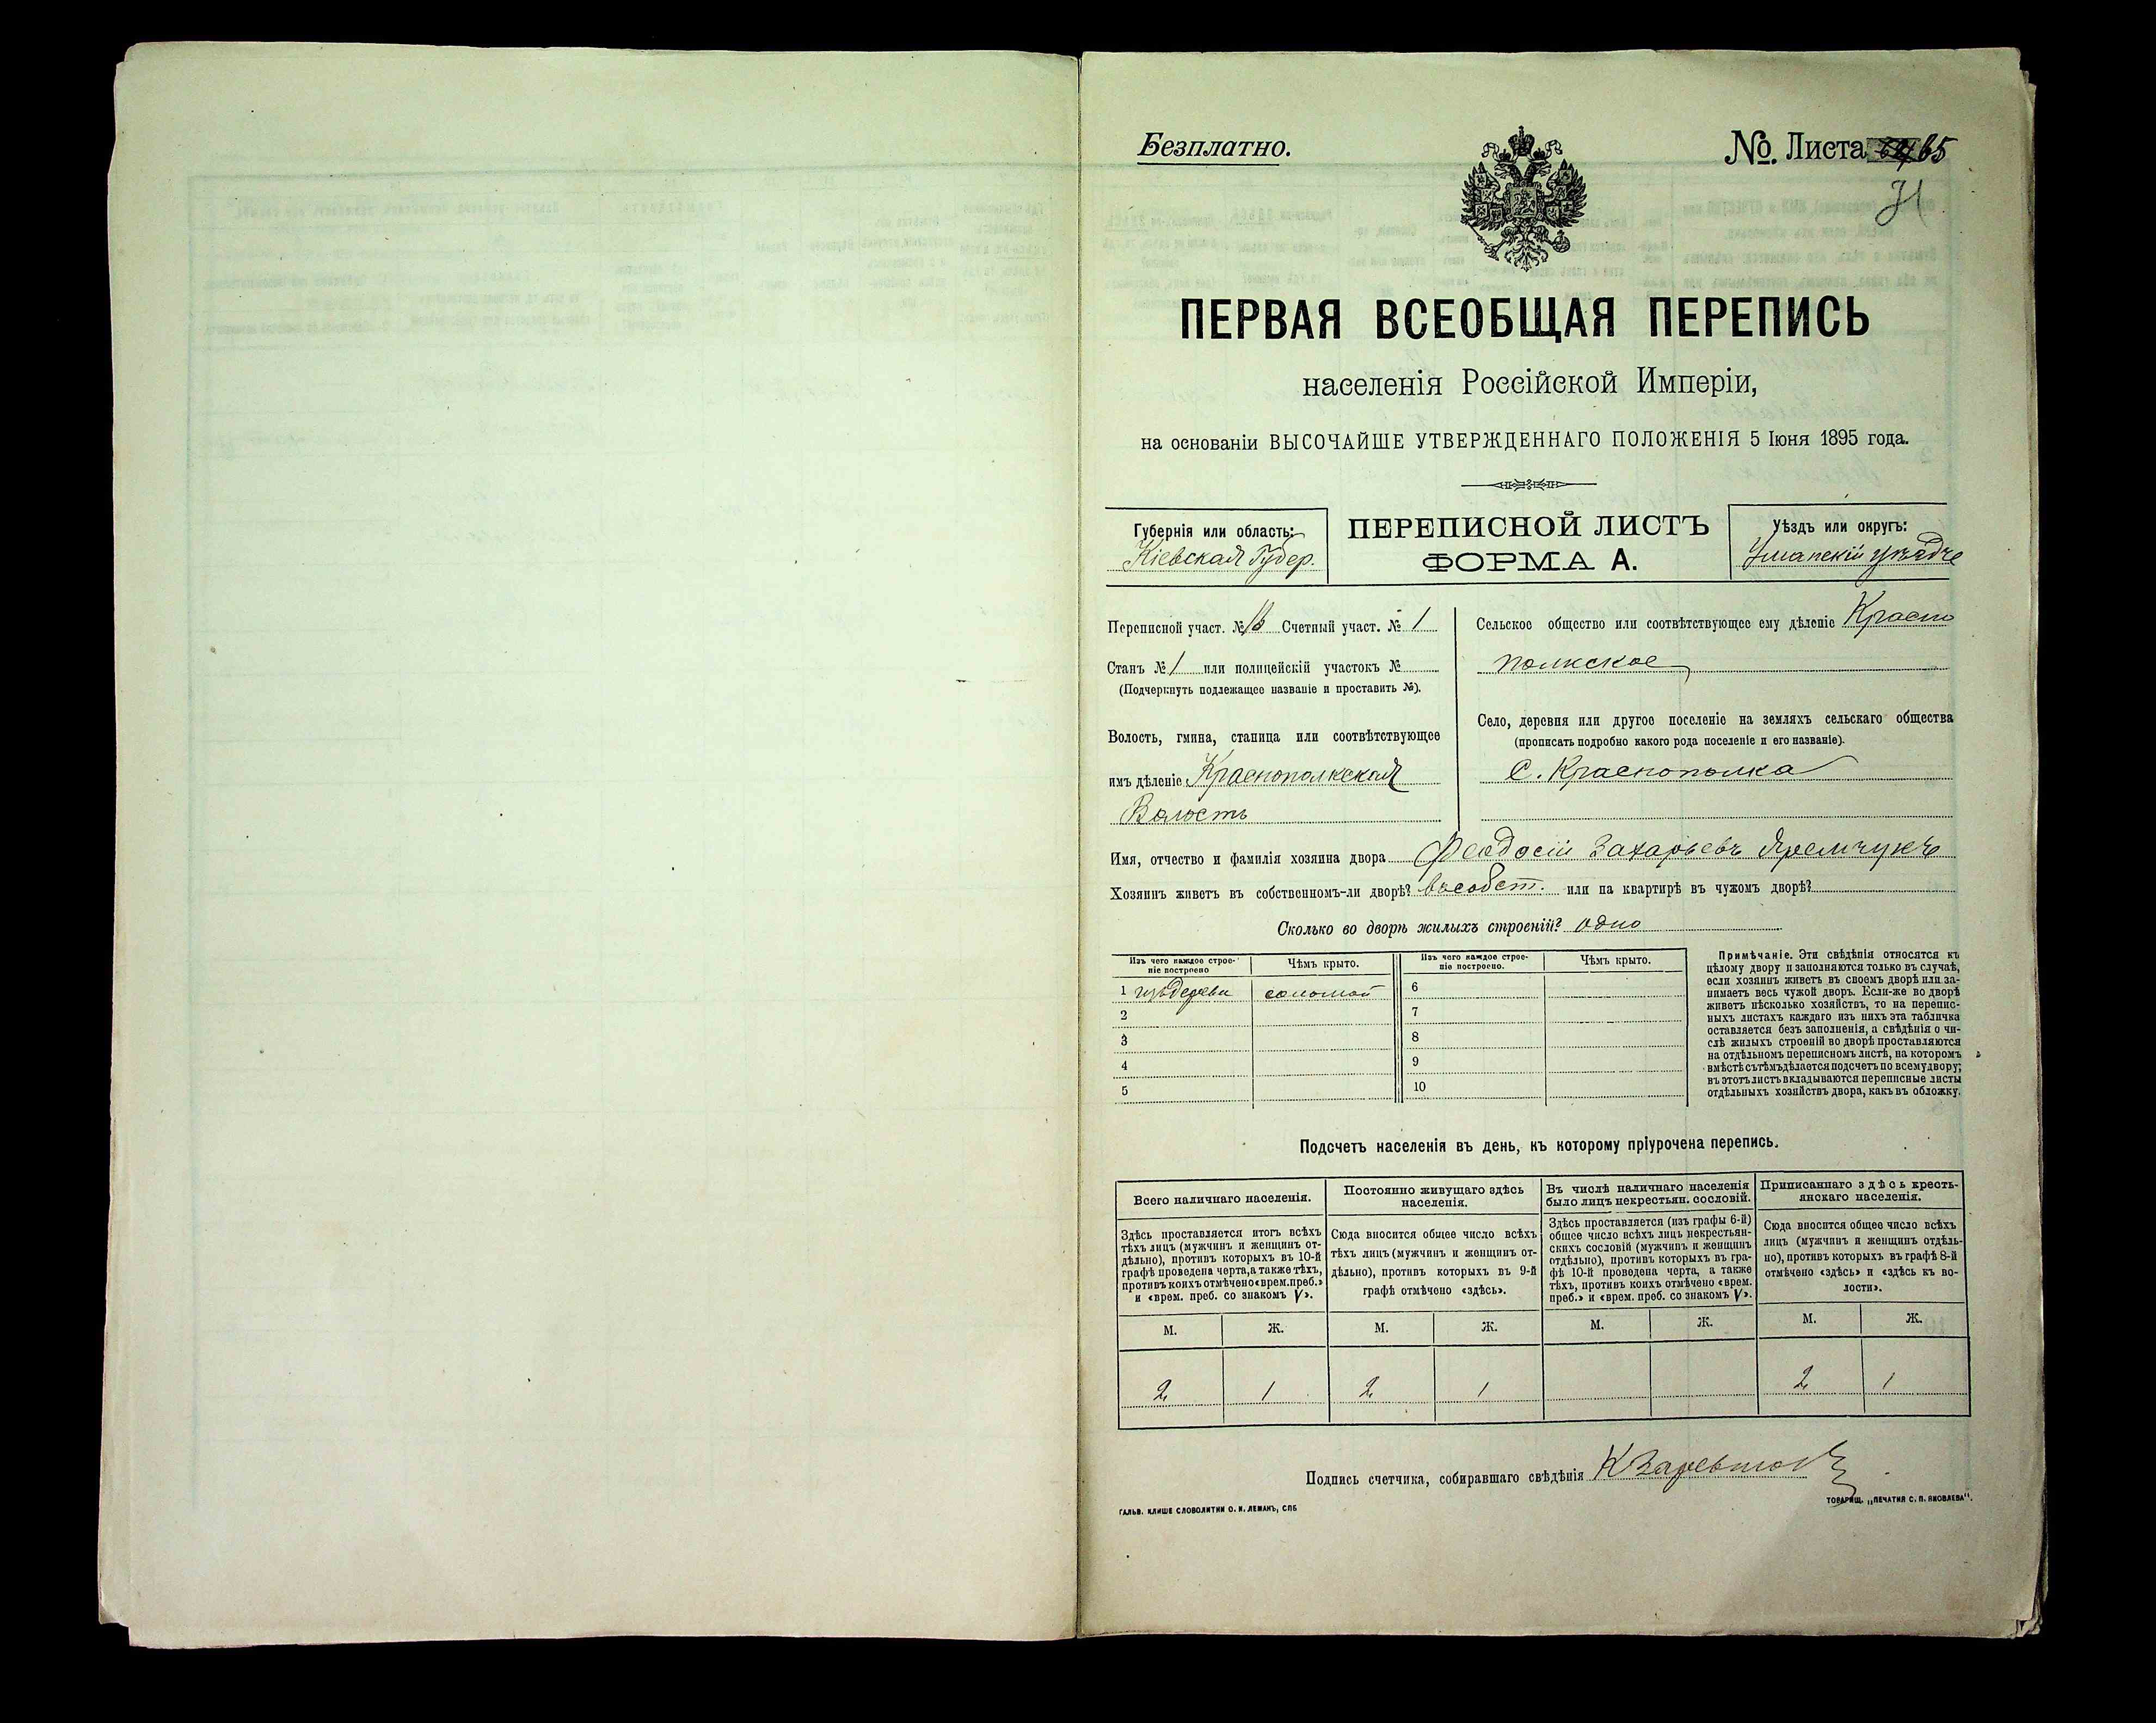 Безплатно.
№. Листа 65
71
ПЕРВАЯ ВСЕОБЩАЯ ПЕРЕПИСЬ
населенія Россійской Имперіи,
на основаніи ВЫСОЧАЙШЕ УТВЕРЖДЕННАГО ПОЛОЖЕНІЯ 5 Іюня 1895 года.
Губернія или область:
Кіевская Губер.
ПЕРЕПИСНОЙ ЛИСТЪ
ФОРМА А.
Уѣздъ или округъ:
Уманскій уѣздъ
Переписной участ. № 16 Счетный участ. № 1
Станъ № 1 или полицейскій участокъ №
(Подчеркнуть подлежащее названіе и проставить №).
Волость, гмина, станица или соотвѣтствующее
имъ дѣленіе Краснополкская
Волость
Сельское общество или соотвѣтствующее ему дѣленіе Красно
полкское
Село, деревня или другое поселеніе на земляхъ сельскаго общества
(прописать подробно какого рода поселеніе и его названіе).
С. Краснополка
Имя, отчество и фамилія хозяина двора Феодосій Захарьевъ Яремчукъ
Хозяинъ живетъ въ собственномъ-ли дворѣ? въ собст. или на квартирѣ въ чужомъ дворѣ?
Сколько во дворѣ жилыхъ строеній? одно
Изъ чего каждое строе-
ніе построено
Чѣмъ крыто.
Изъ чего каждое строе-
ніе построено.
Чѣмъ крыто.
1 изъ дерева соломой
2
3
4
5
6
7
8
9
10
Примѣчаніе. Эти свѣдѣнія относятся къ
цѣлому двору и заполняются только въ случаѣ,
если хозяинъ живетъ въ своемъ дворѣ или за-
нимаетъ весь чужой дворъ. Если-же во дворѣ
живетъ нѣсколько хозяйствъ, то на перепис-
ныхъ листахъ каждаго изъ нихъ эта табличка
оставляется безъ заполненія, а свѣдѣнія о чи-
слѣ жилыхъ строеній во дворѣ проставляются
на отдѣльномъ переписномъ листѣ, на которомъ
вмѣстѣ съ тѣмъ дѣлается подсчетъ по всему двору;
въ этотъ листъ вкладываются переписные листы
отдѣльныхъ хозяйствъ двора, какъ въ обложку.
Подсчетъ населенія въ день, къ которому пріурочена перепись.
Всего наличнаго населенія.
Здѣсь проставляется итогъ всѣхъ
тѣхъ лицъ (мужчинъ и женщинъ от-
дѣльно), противъ которыхъ въ 10-й
графѣ проведена черта, а также тѣхъ,
противъ коихъ отмѣчено «врем. преб.»
и «врем. преб. со знакомъ V».
Постоянно живущаго здѣсь
населенія.
Сюда вносится общее число всѣхъ
тѣхъ лицъ (мужчинъ и женщинъ от-
дѣльно), противъ которыхъ въ 9-й
графѣ отмѣчено «здѣсь».
Въ числѣ наличнаго населенія
было лицъ некрестьян. сословій.
Здѣсь проставляется (изъ графы 6-й)
общее число всѣхъ лицъ некрестьян-
скихъ сословій (мужчинъ и женщинъ
отдѣльно), противъ которыхъ въ гра-
фѣ 10-й проведена черта, а также
тѣхъ, противъ коихъ отмѣчено «врем.
преб.» и «врем. преб. со знакомъ V».
Приписаннаго здѣсь кресть-
янскаго населенія.
Сюда вносится общее число всѣхъ
лицъ (мужчинъ и женщинъ отдѣль-
но), противъ которыхъ въ графѣ 8-й
отмѣчено «здѣсь» и «здѣсь къ во-
лости».
М. Ж. М. Ж. М. Ж. М. Ж.
2 1 2 1 2 1
Подпись счетчика, собиравшаго свѣдѣнія
ГАЛЬВ. КЛИШЕ СЛОВОЛИТНИ О. И. ЛЕМАНЪ, СПБ
ТОВАРИЩ. „ПЕЧАТНЯ С. П. ЯКОВЛЕВА".